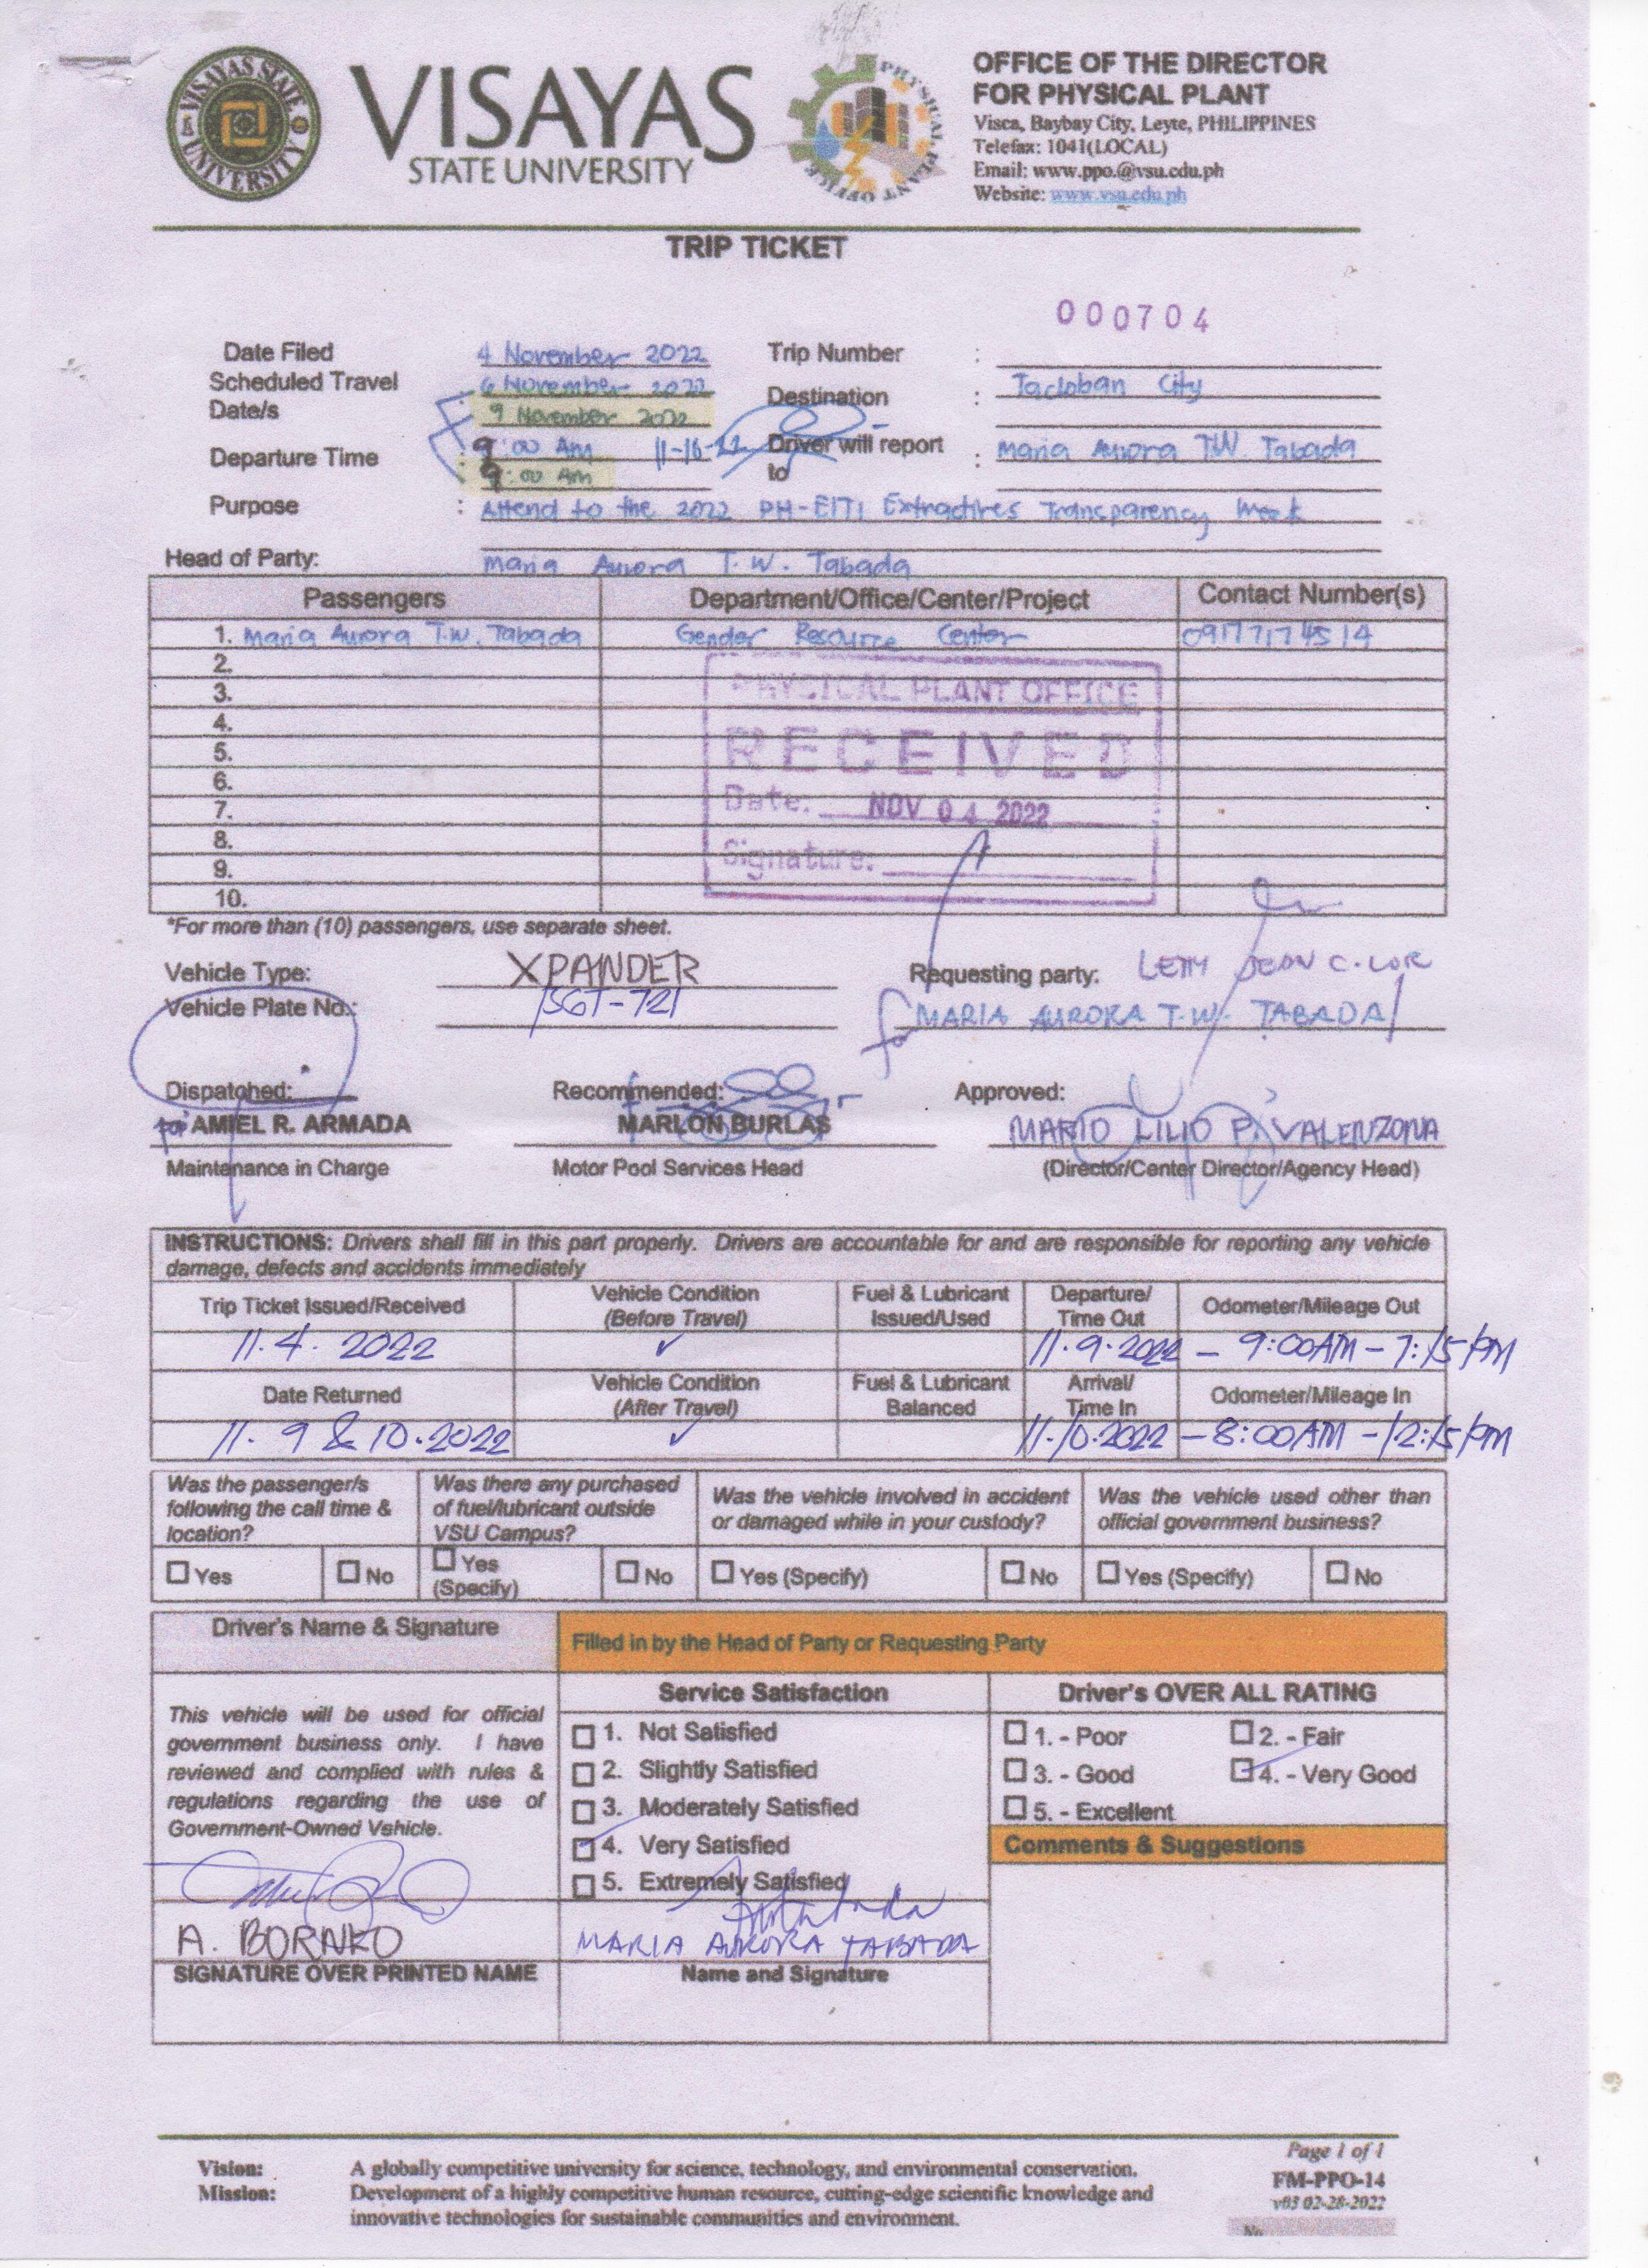 VISAYAS STATE UNIVERSITY
VISAYAS
STATE UNIVERSITY
PHYSICAL PLANT OFFICE
OFFICE OF THE DIRECTOR
FOR PHYSICAL PLANT
Visca, Baybay City, Leyte, PHILIPPINES
Telefax: 1041(LOCAL)
Email: www.ppo.@vsu.edu.ph
Website: www.vsu.edu.ph
TRIP TICKET
000704
Date Filed 4 November 2022 Trip Number :
Scheduled Travel Date/s : 6 November 2022 Destination : Tacloban City
9 November 2022
Departure Time : 9:00 AM 11-16-22 Driver will report to : Maria Aurora T.W. Tabada
9:00 AM
Purpose : Attend to the 2022 PH-EITI Extractives Transparency Week
Head of Party: Maria Aurora T.W. Tabada
Passengers Department/Office/Center/Project Contact Number(s)
1. Maria Aurora T.W. Tabada Gender Resource Center 09177174514
2.
3.
4.
5.
6.
7.
8.
9.
10.
PHYSICAL PLANT OFFICE
RECEIVED
Date: NOV 04 2022
Signature:
*For more than (10) passengers, use separate sheet.
Vehicle Type: XPANDER Requesting party: LETTY JEAN C. LOR
Vehicle Plate No.: for MARIA AURORA T.W. TABADA
Dispatched: Recommended: Approved:
for AMIEL R. ARMADA MARLON BURLAS MARIO LILIO P. VALENZONA
Maintenance in Charge Motor Pool Services Head (Director/Center Director/Agency Head)
INSTRUCTIONS: Drivers shall fill in this part properly. Drivers are accountable for and are responsible for reporting any vehicle
damage, defects and accidents immediately
Trip Ticket Issued/Received Vehicle Condition (Before Travel) Fuel & Lubricant Issued/Used Departure/ Time Out Odometer/Mileage Out
11.4.2022 ✓ 11.9.2022 – 9:00AM – 7:15PM
Date Returned Vehicle Condition (After Travel) Fuel & Lubricant Balanced Arrival/ Time In Odometer/Mileage In
11.9 & 10.2022 ✓ 11.10.2022 – 8:00AM – 12:15PM
Was the passenger/s following the call time & location? Was there any purchased of fuel/lubricant outside VSU Campus? Was the vehicle involved in accident or damaged while in your custody? Was the vehicle used other than official government business?
Yes No Yes (Specify) No Yes (Specify) No Yes (Specify) No
Driver's Name & Signature
Filled in by the Head of Party or Requesting Party
This vehicle will be used for official
government business only. I have
reviewed and complied with rules &
regulations regarding the use of
Government-Owned Vehicle.
A. BORNEO
SIGNATURE OVER PRINTED NAME
Service Satisfaction
1. Not Satisfied
2. Slightly Satisfied
3. Moderately Satisfied
4. Very Satisfied
5. Extremely Satisfied
MARIA AURORA TABADA
Name and Signature
Driver's OVER ALL RATING
1. - Poor 2. - Fair
3. - Good 4. - Very Good
5. - Excellent
Comments & Suggestions
Vision: A globally competitive university for science, technology, and environmental conservation.
Mission: Development of a highly competitive human resource, cutting-edge scientific knowledge and
innovative technologies for sustainable communities and environment.
Page 1 of 1
FM-PPO-14
v03 02-28-2022
No.